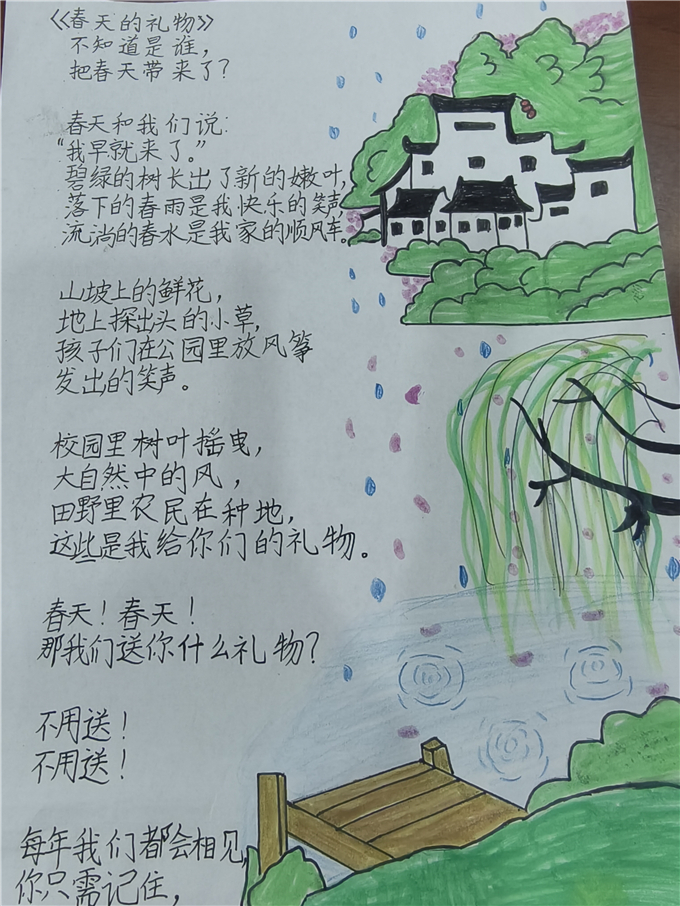 《春天的礼物》
不知道是谁，
把春天带来了？
春天和我们说：
“我早就来了。”
碧绿的树长出了新的嫩叶，
落下的春雨是我快乐的笑声，
流淌的春水是我家的顺风车。
山坡上的鲜花，
地上探出头的小草，
孩子们在公园里放风筝
发出的笑声。
校园里树叶摇曳，
大自然中的风，
田野里农民在种地，
这些是我给你们的礼物。
春天！春天！
那我们送你什么礼物？
不用送！
不用送！
每年我们都会相见，
你只需记住，